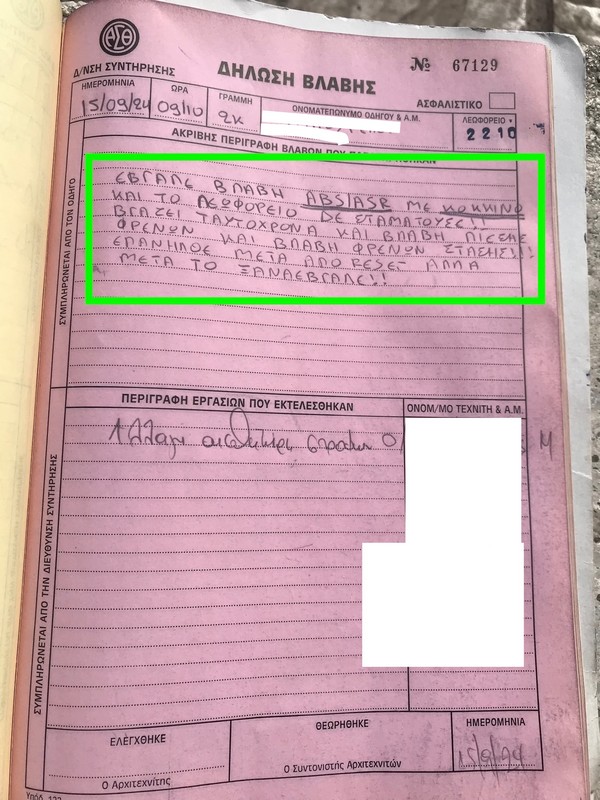 ΑΣΘ
Δ/ΝΣΗ ΣΥΝΤΗΡΗΣΗΣ
ΔΗΛΩΣΗ ΒΛΑΒΗΣ
№ 67129
ΗΜΕΡΟΜΗΝΙΑ
15/09/24
ΩΡΑ
09:10
ΓΡΑΜΜΗ
2Κ
ΟΝΟΜΑΤΕΠΩΝΥΜΟ ΟΔΗΓΟΥ & Α.Μ.
ΑΣΦΑΛΙΣΤΙΚΟ
ΛΕΩΦΟΡΕΙΟ
2210
ΑΚΡΙΒΗΣ ΠΕΡΙΓΡΑΦΗ ΒΛΑΒΩΝ
ΣΥΜΠΛΗΡΩΝΕΤΑΙ ΑΠΟ ΤΟΝ ΟΔΗΓΟ
ΕΒΓΑΛΕ ΒΛΑΒΗ ABS/ASR ΜΕ ΚΟΚΚΙΝΟ
ΚΑΙ ΤΟ ΛΕΩΦΟΡΕΙΟ ΔΕ ΣΤΑΜΑΤΟΥΣΕ!!
ΒΓΑΖΕΙ ΤΑΥΤΟΧΡΟΝΑ ΚΑΙ ΒΛΑΒΗ ΠΙΕΣΗΣ
ΦΡΕΝΩΝ ΚΑΙ ΒΛΑΒΗ ΦΡΕΝΩΝ ΣΤΑΣΗΣ!!!
ΕΠΑΝΗΛΘΕ ΜΕΤΑ ΑΠΟ RESET ΑΛΛΑ
ΜΕΤΑ ΤΟ ΞΑΝΑΕΒΓΑΛΕ!!
ΠΕΡΙΓΡΑΦΗ ΕΡΓΑΣΙΩΝ ΠΟΥ ΕΚΤΕΛΕΣΘΗΚΑΝ
ΟΝΟΜ/ΜΟ ΤΕΧΝΙΤΗ & Α.Μ.
ΣΥΜΠΛΗΡΩΝΕΤΑΙ ΑΠΟ ΤΗΝ ΔΙΕΥΘΥΝΣΗ ΣΥΝΤΗΡΗΣΗΣ
Αλλαγη
ΕΛΕΓΧΘΗΚΕ
Ο Αρχιτεχνίτης
ΘΕΩΡΗΘΗΚΕ
Ο Συντονιστής Αρχιτεχνιτών
ΗΜΕΡΟΜΗΝΙΑ
15/9/24